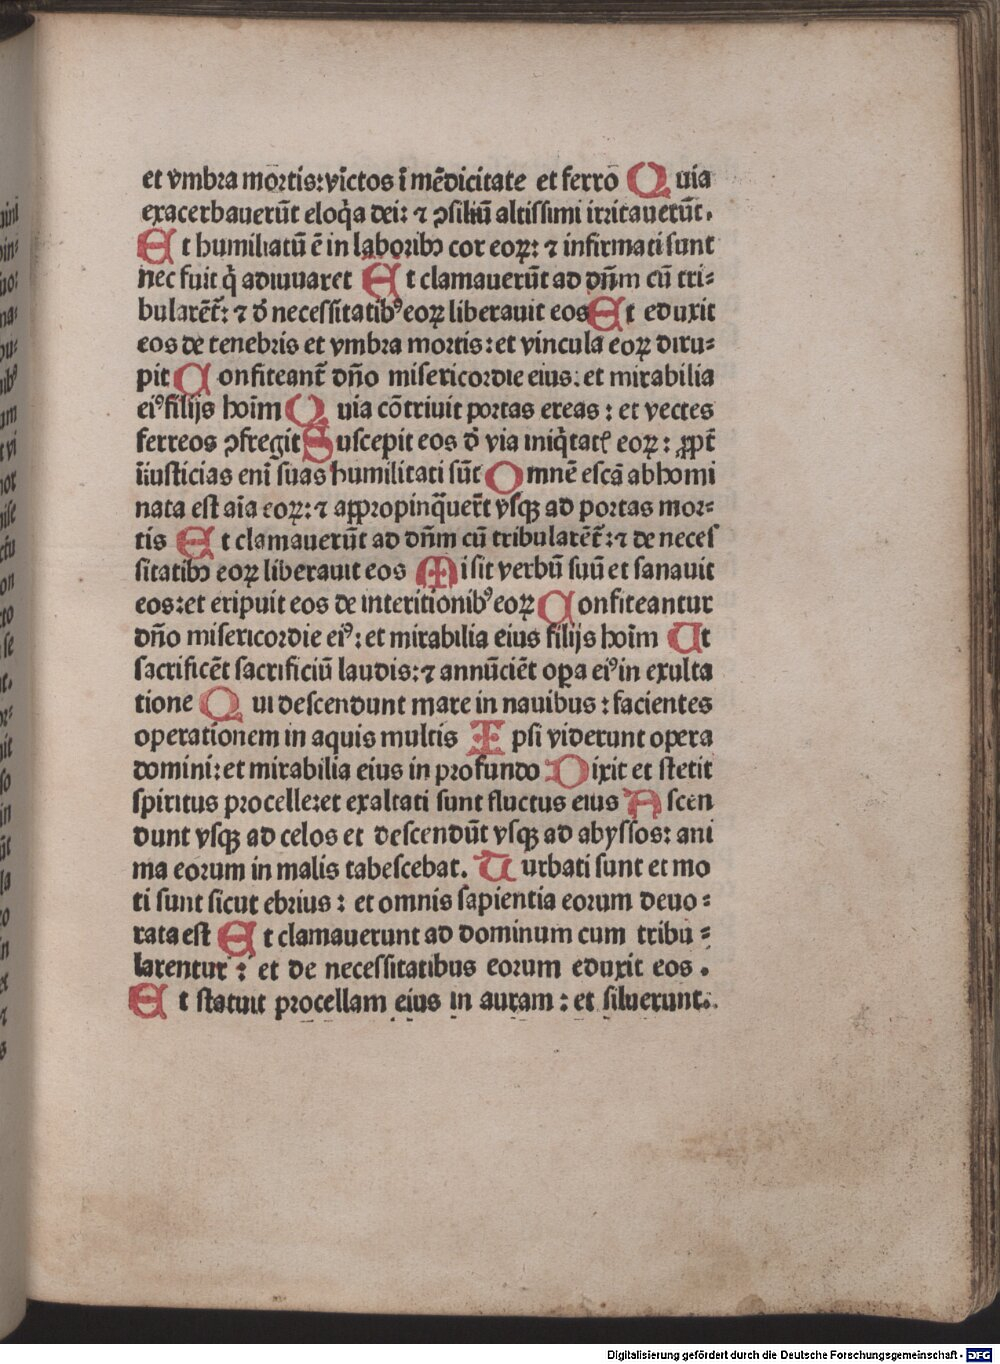 et vmbra mortis: vīctos ī mēdicitate et ferrō Quia
exacerbauerūt eloq̄a dei: ⁊ ꝯsiliū altissimi irritauerūt.
Et humiliatū ē in laboribꝫ cor eoꝝ: ⁊ infirmati sunt
nec fuit q̄ adiuuaret Et clamauerūt ad dn̄m cū tri⸗
bularēt̄: ⁊ đ necessitatibꝰ eoꝝ liberauit eos Et eduxit
eos de tenebris et vmbra mortis: et vincula eoꝝ diru⸗
pit Confiteant̄ dn̄o misericordie eius: et mirabilia
eiꝰ filijs hoīm Quia cōtriuit portas ereas: et vectes
ferreos ꝯfregit Suscepit eos đ via iniq̄tatꝭ eoꝝ: ꝓpt̄
īiusticias enī suas humilitati sūt Omnē escā abhomi
nata est aīa eoꝝ: ⁊ appropinq̄uer̄t vsqꝫ ad portas mor⸗
tis Et clamauerūt ad dn̄m cū tribularēt̄: ⁊ de neces
sitatibꝫ eoꝝ liberauit eos Misit verbū suū et sanauit
eos: et eripuit eos de interitionibꝰ eoꝝ Confiteantur
dn̄o misericordie eiꝰ: et mirabilia eius filijs hoīm Ut
sacrificēt sacrificiū laudis: ⁊ annūciēt oꝑa eiꝰ in exulta
tione Qui descendunt mare in nauibus: facientes
operationem in aquis multis Ipsi viderunt opera
domini: et mirabilia eius in profundo Dixit et stetit
spiritus procelle: et exaltati sunt fluctus eius Ascen
dunt vsqꝫ ad celos et descendūt vsqꝫ ad abyssos: ani
ma eorum in malis tabescebat. Turbati sunt et mo
ti sunt sicut ebrius: et omnis sapientia eorum deuo⸗
rata est Et clamauerunt ad dominum cum tribu⸗
larentur: et de necessitatibus eorum eduxit eos.
Et statuit procellam eius in auram: et siluerunt.
Digitalisierung gefördert durch die Deutsche Forschungsgemeinschaft - DFG